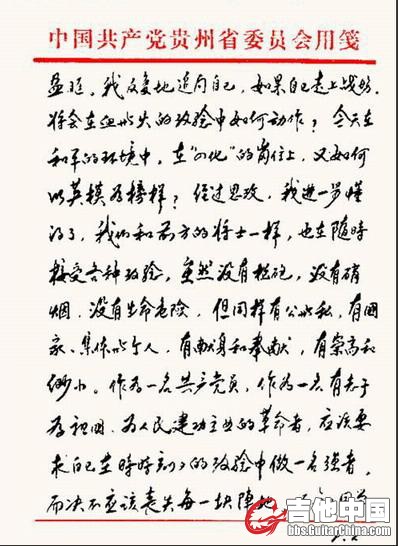 中国共产党贵州省委员会用笺
盈眶。我反复地追问自己，如果自己走上战场，
将会在血与火的考验中如何动作？今天在
和平的环境中，在"四化"的岗位上，又如何
以英模为榜样？经过思考，我进一步懂
得了，我们和前方的将士一样，也在随时
接受各种考验，虽然没有枪炮，没有硝
烟，没有生命危险，但同样有公与私，有国
家、集体与个人，有献身和奉献，有崇高和
渺小。作为一名共产党员，作为一名有志于
为祖国、为人民建功立业的革命者，应该要
求自己在时时刻刻的考验中做一名强者，
而决不应该丧失每一块阵地，
吉他中国
BBS.GuitarsChina.com